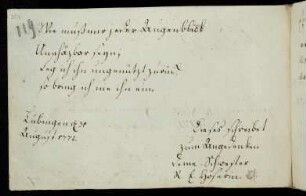 119
Wie muß mir jeder Augenblick
Unschäzbar seyn,
Leg ich ihn ungenützt zurück
so bring ich nie ihn ein.
Tübingen d.
August 1772.
Dieses schreibet
zum Angedenken
Deine Schwester